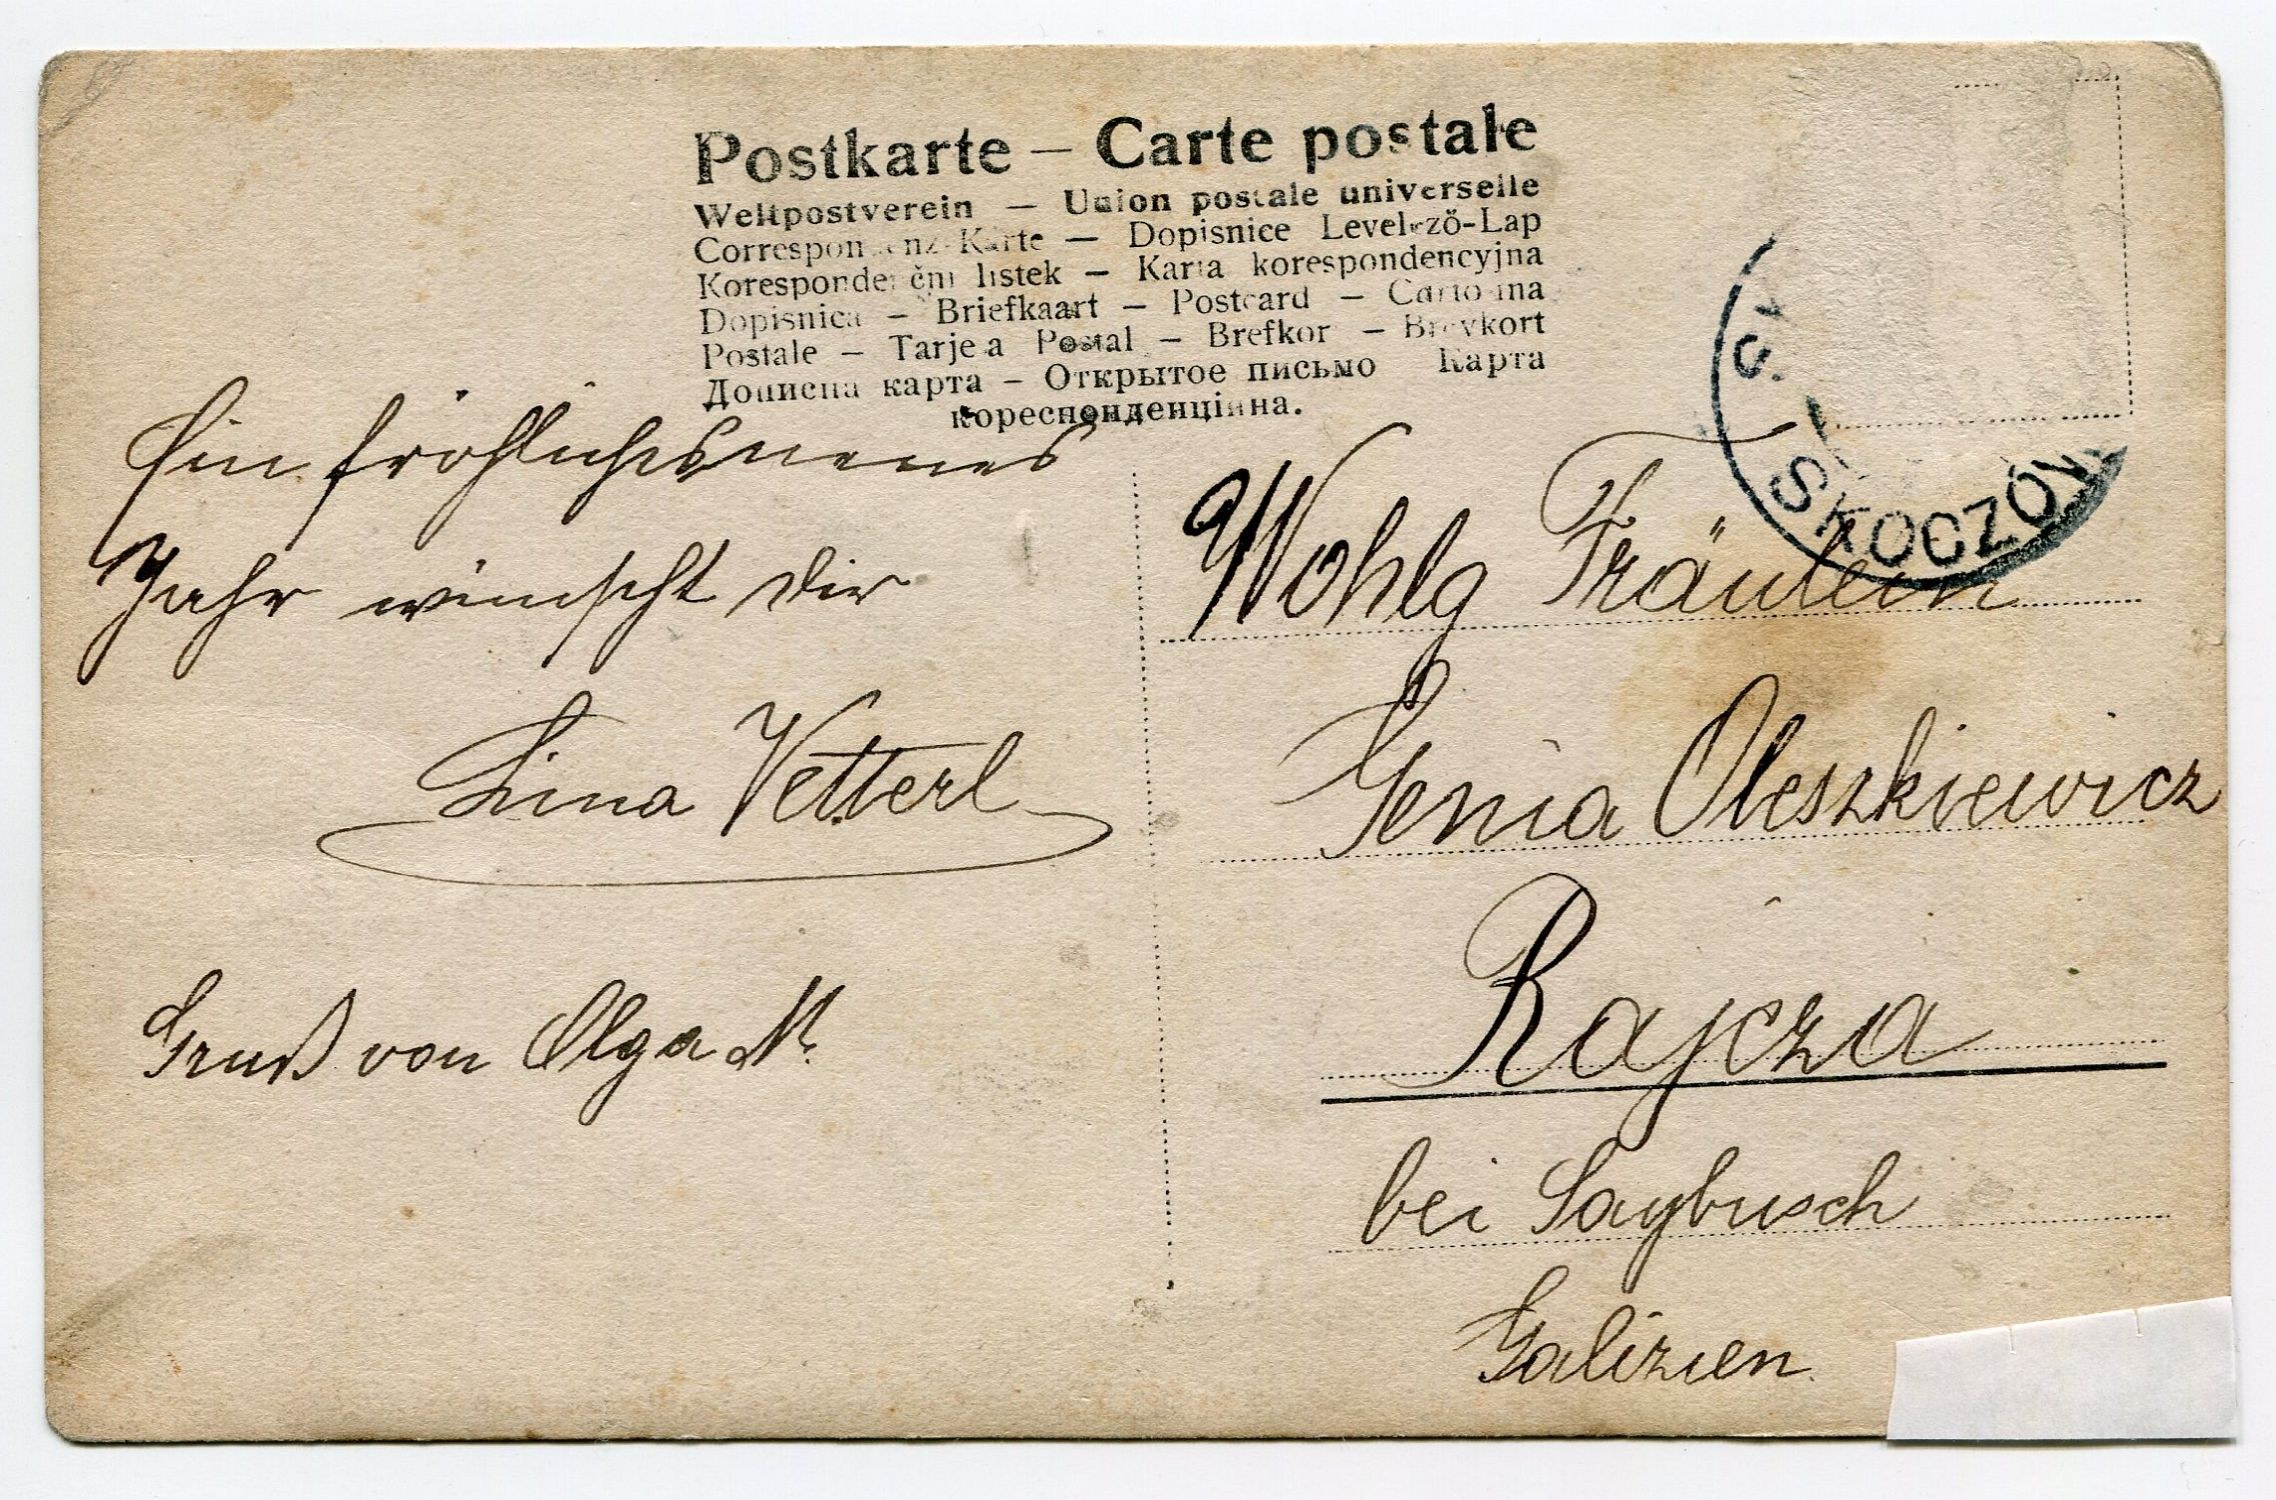 Postkarte – Carte postale
Weltpostverein – Union postale universelle
Correspondenz-Karte – Dopisnice Levelező-Lap
Korespondenční lístek – Karta korespondencyjna
Dopisnica – Briefkaart – Postcard – Cartolina
Postale – Tarjeta Postal – Brefkor – Brevkort
Дописна карта – Открытое письмо Карта
кореспонденцiйна.
SKOCZÓW
Ein fröhliches neues
Jahr wünscht dir
Lina Vetterl
Gruß von Olga M.
Wohlg Fräulein
Genia Oleszkiewicz
Rajcza
bei Saybusch
Galizien.